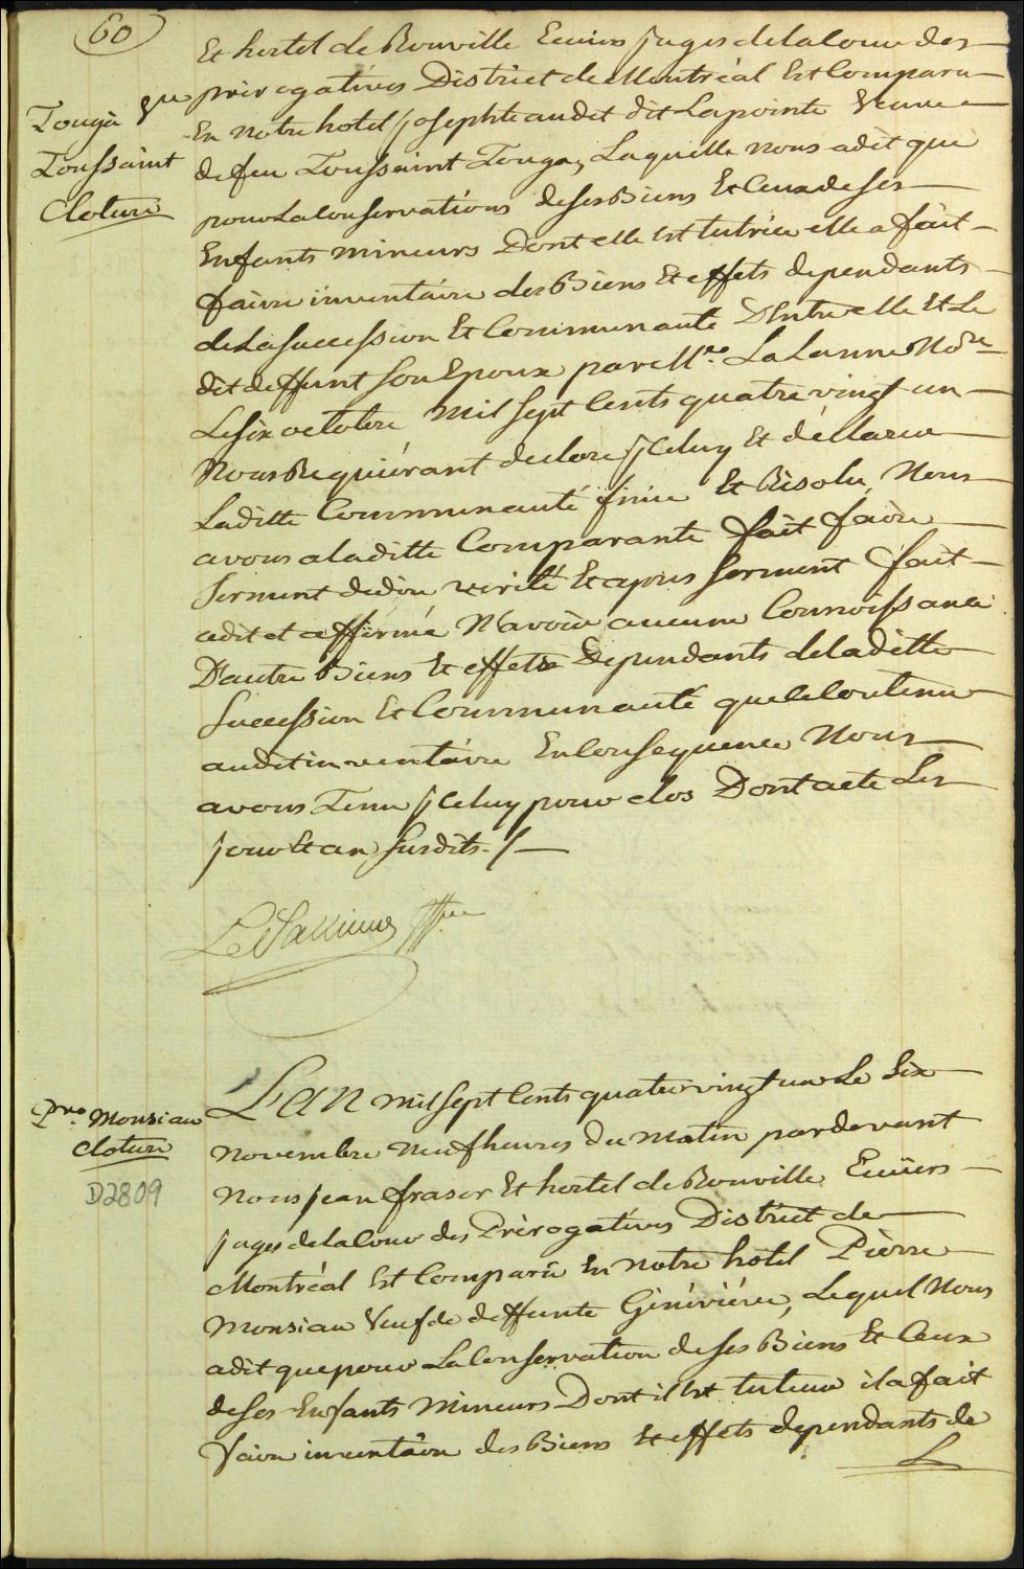 60
Et hertel de Rouville Ecuiers juges de la Cour des
prérogatives District de Montréal Est Comparu
Tougà Vve
Toussaint
Cloture
En notre hotel josephte audet dit Lapointe Veuve
de feu Toussaint Touga, Laquelle nous a dit que
pour La Conservations de ses Biens Et Ceux de ses
Enfants mineurs Dont elle Est tutrice elle a fait
faire inventaire des Biens Et effets dependants
de La Succession Et Communauté D'Entre elle Et Le
dit deffunt Son Epoux par Mre. LaLanne Nore
Le six octobre mil Sept Cents quatre vingt un
Nous Requiérant de clore jCeluy Et déclarer
Laditte Communauté finie Et Résolu, Nous
avons a laditte Comparante fait faire
Serment de dire verité Et apres Serment fait
a dit et affirmé N'avoir aucune Connoissance
D'autre Biens Et effets Dependants de laditte
Succession Et Communauté que le Contenu
audit inventaire En Consequence Nous
avons Tenu jCeluy pour clos Dont acte Les
jour Et an Susdits ./.
Pre. Monsiau
Cloture
D2809
L'an mil sept Cents quatre vingt un Le Six
novembre neuf heures du matin pardevant
Nous jean fraser Et hertel de Rouville Ecuiers
juges de la Cour des Prérogatives District de
Montréal Est Comparu En notre hôtel Pièrre
Monsiau Veuf de deffunte Géniviéve, Lequel Nous
a dit que pour La Conservation de ses Biens Et Ceux
de ses Enfants Mineurs Dont il Est tuteur il a fait
faire inventaire des Biens Et effets dependants de
L